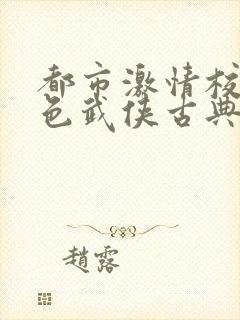 都市激情校
色武侠古典
趙露